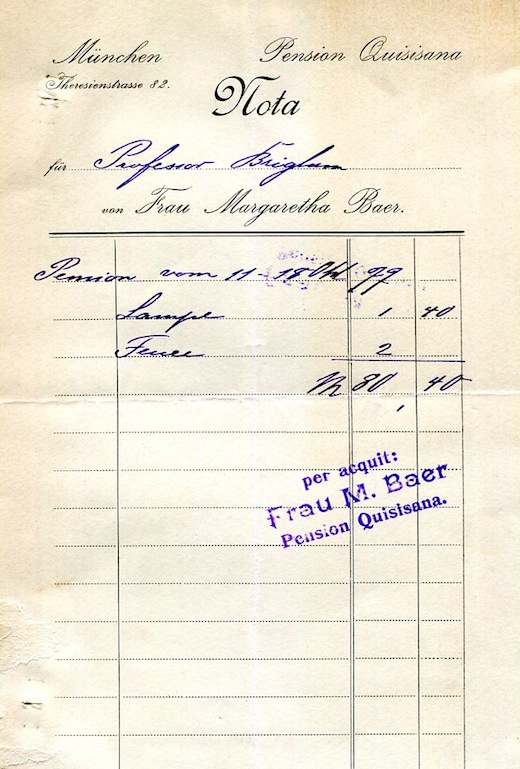 München Pension Quisisana
Theresienstrasse 82.
Nota
für Professor Brigham
von Frau Margaretha Baer.
Pension vom 11-18 Okt 77
Lampe 1 40
Feuer 2
M 80 40
per acquit:
Frau M. Baer
Pension Quisisana.